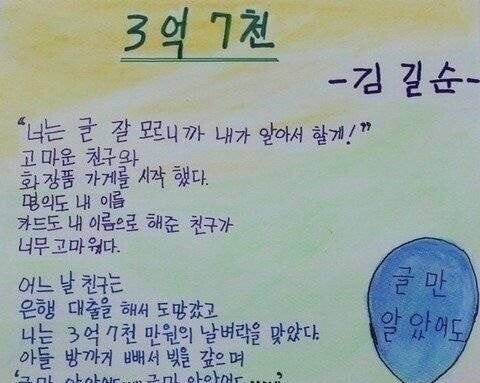 3억 7천
-김길순-
"너는 글 잘 모르니까 내가 알아서 할게!"
고마운 친구와
화장품 가게를 시작 했다.
명의도 내 이름
카드도 내 이름으로 해준 친구가
너무 고마웠다.
어느 날 친구는
은행 대출을 해서 도망갔고
나는 3억 7천 만원의 날벼락을 맞았다.
아들 방까지 빼서 빚을 갚으며
글만
알았어도